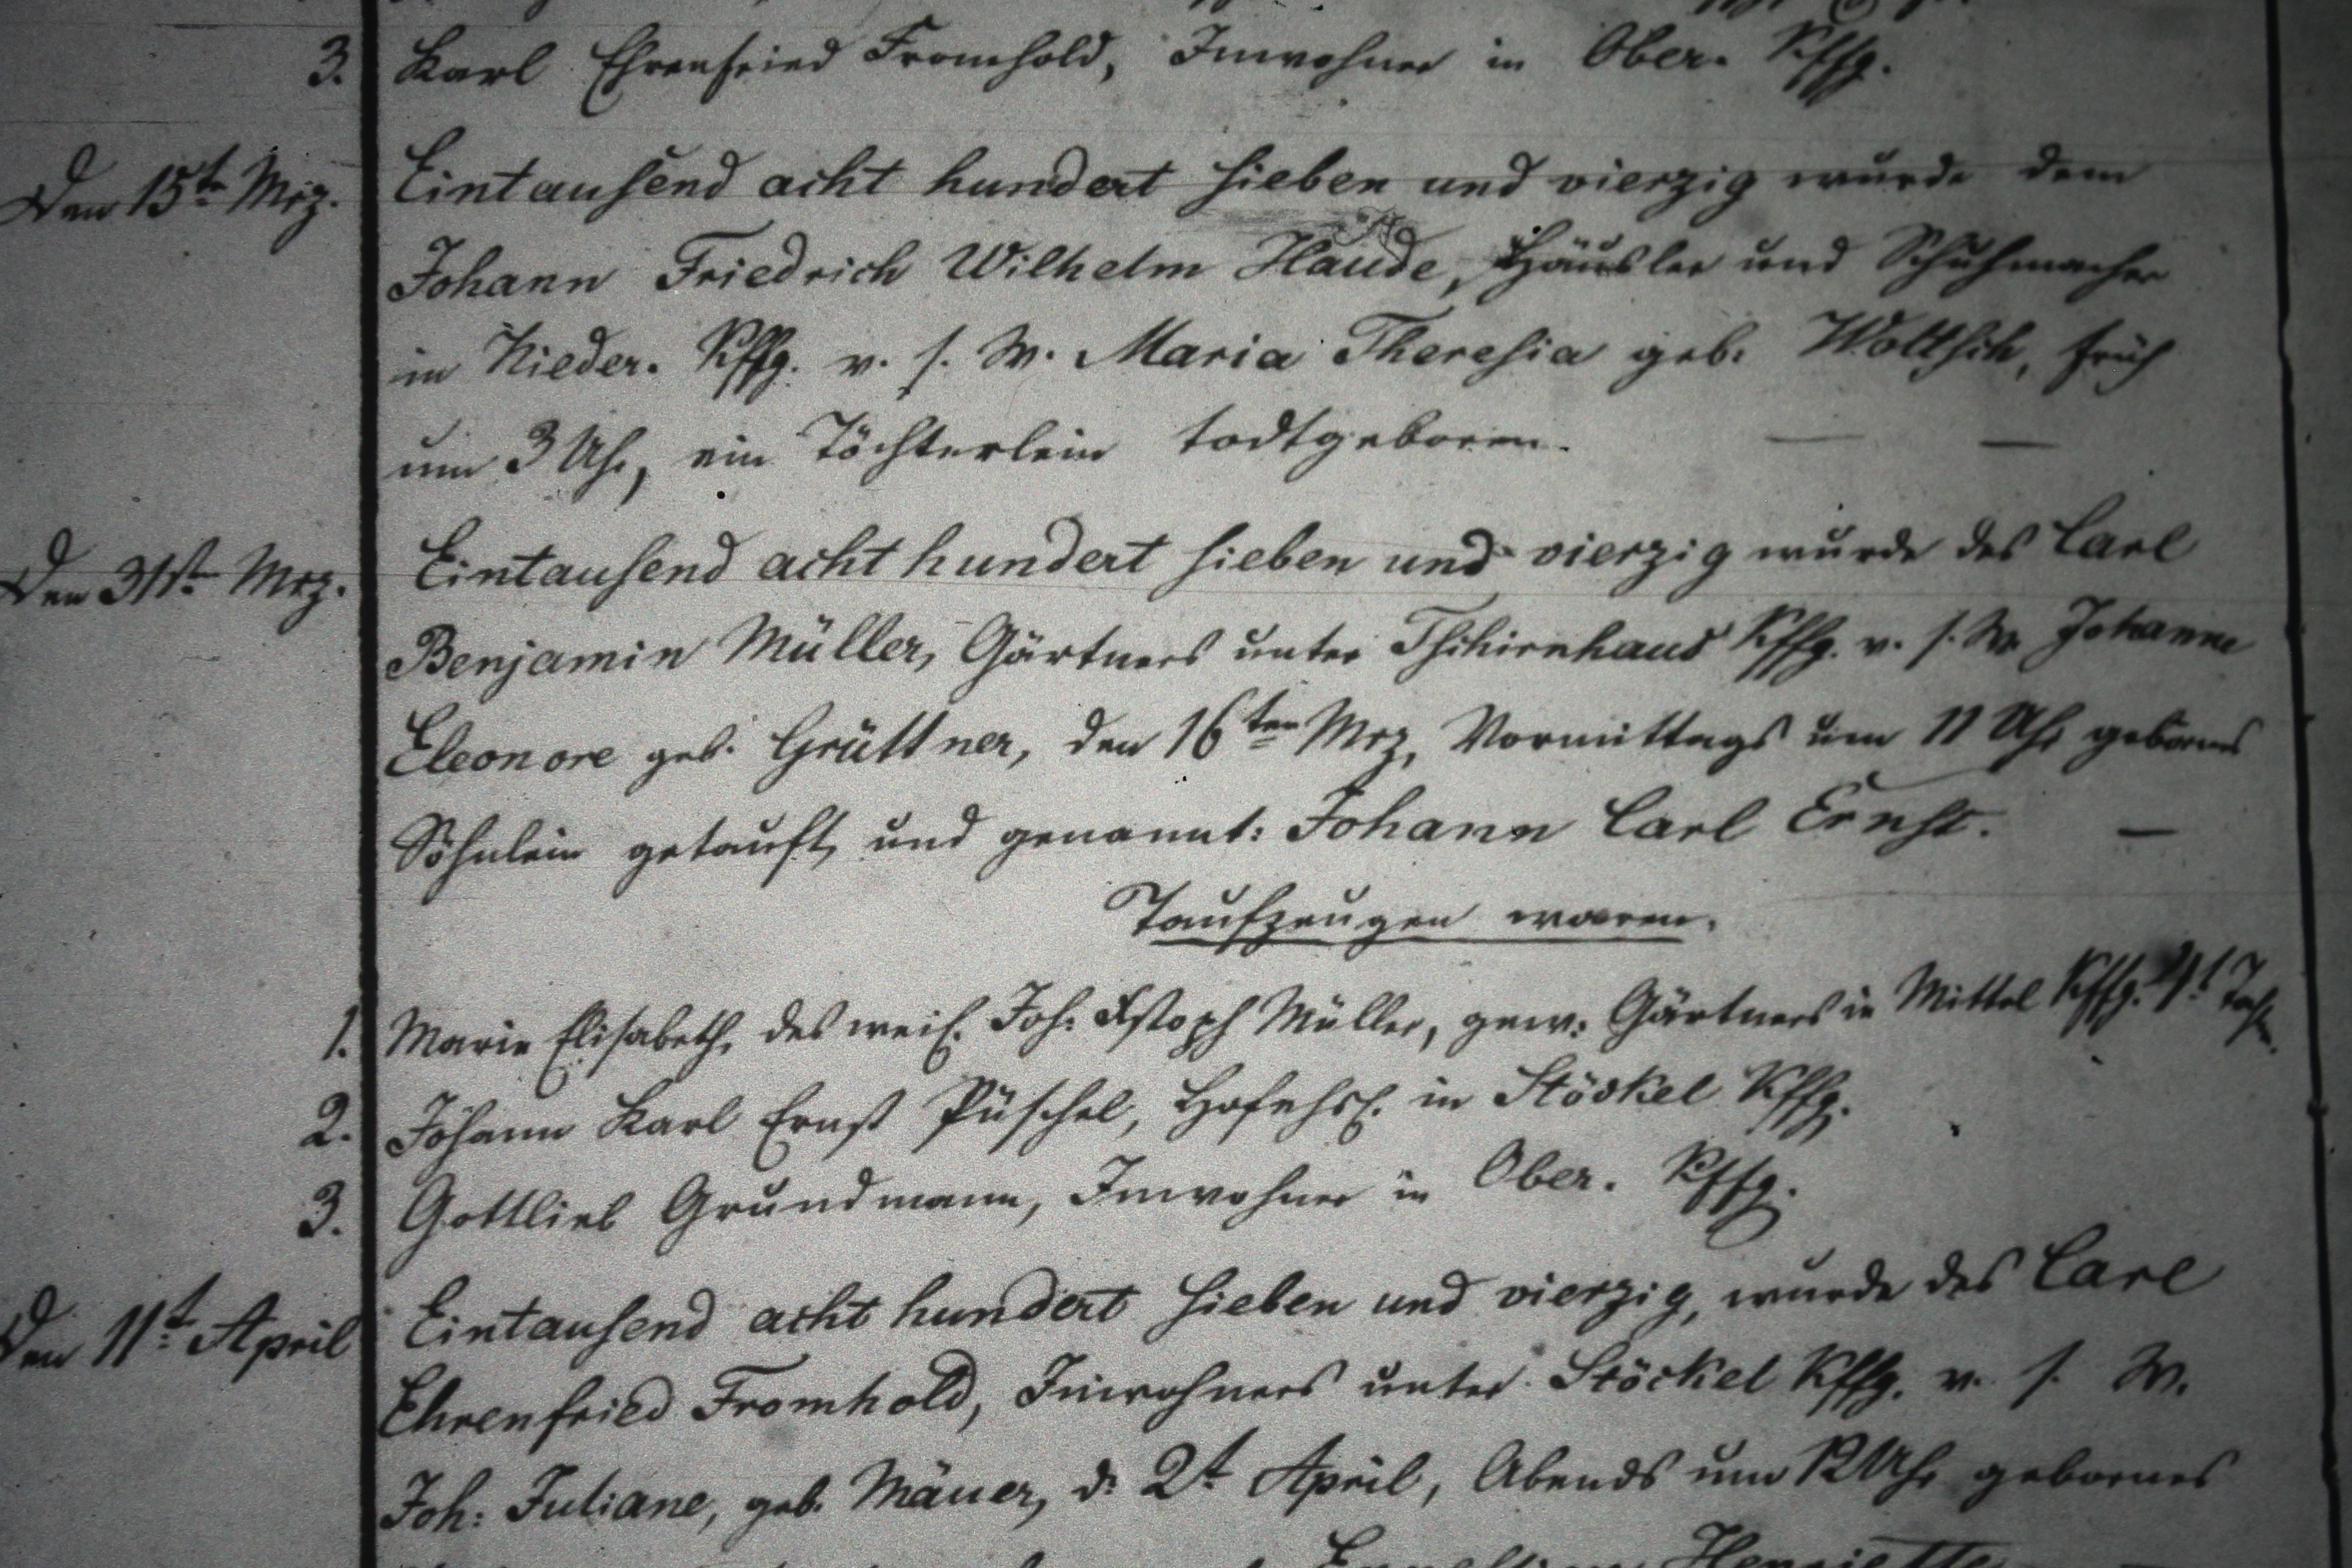 3. Karl Ehrenfried Fromhold, Inwohner in Ober. Kffg.
Den 15t Mrz. Eintausend acht hundert sieben und vierzig wurde dem
Johann Friedrich Wilhelm Haude, Häusler und Schuhmacher
in Nieder. Kffg. v. s. W. Maria Theresia geb. Wolttsch, früh
um 3 Uhr, ein Töchterlein todtgeboren. — —
Den 31st Mrz. Eintausend acht hundert sieben und vierzig wurde des Carl
Benjamin Müller, Gärtners unter Tschirnhaus Kffg. v. s. W. Johanne
Eleonore geb. Grüttner, den 16ten Mrz, Vormittags um 11 Uhr gebornes
Söhnlein getauft, und genannt: Johann Carl Ernst. —
Taufzeugen waren.
1. Marie Elisabeth, des weil. Joh: Xstoph Müller, gew: Gärtners in Mittel Kffg.
2. Johann Karl Ernst Püschel, in Stöckel Kffg.
3. Gottlieb Grundmann, Inwohner in Ober. Kffg.
Den 11t April Eintausend acht hundert sieben und vierzig, wurde des Carl
Ehrenfried Fromhold, Inwohners unter Stöckel Kffg. v. s. W.
Joh: Juliane, geb. Mäuer, d. 2t April, Abends um 12 Uhr gebornes
Henriette